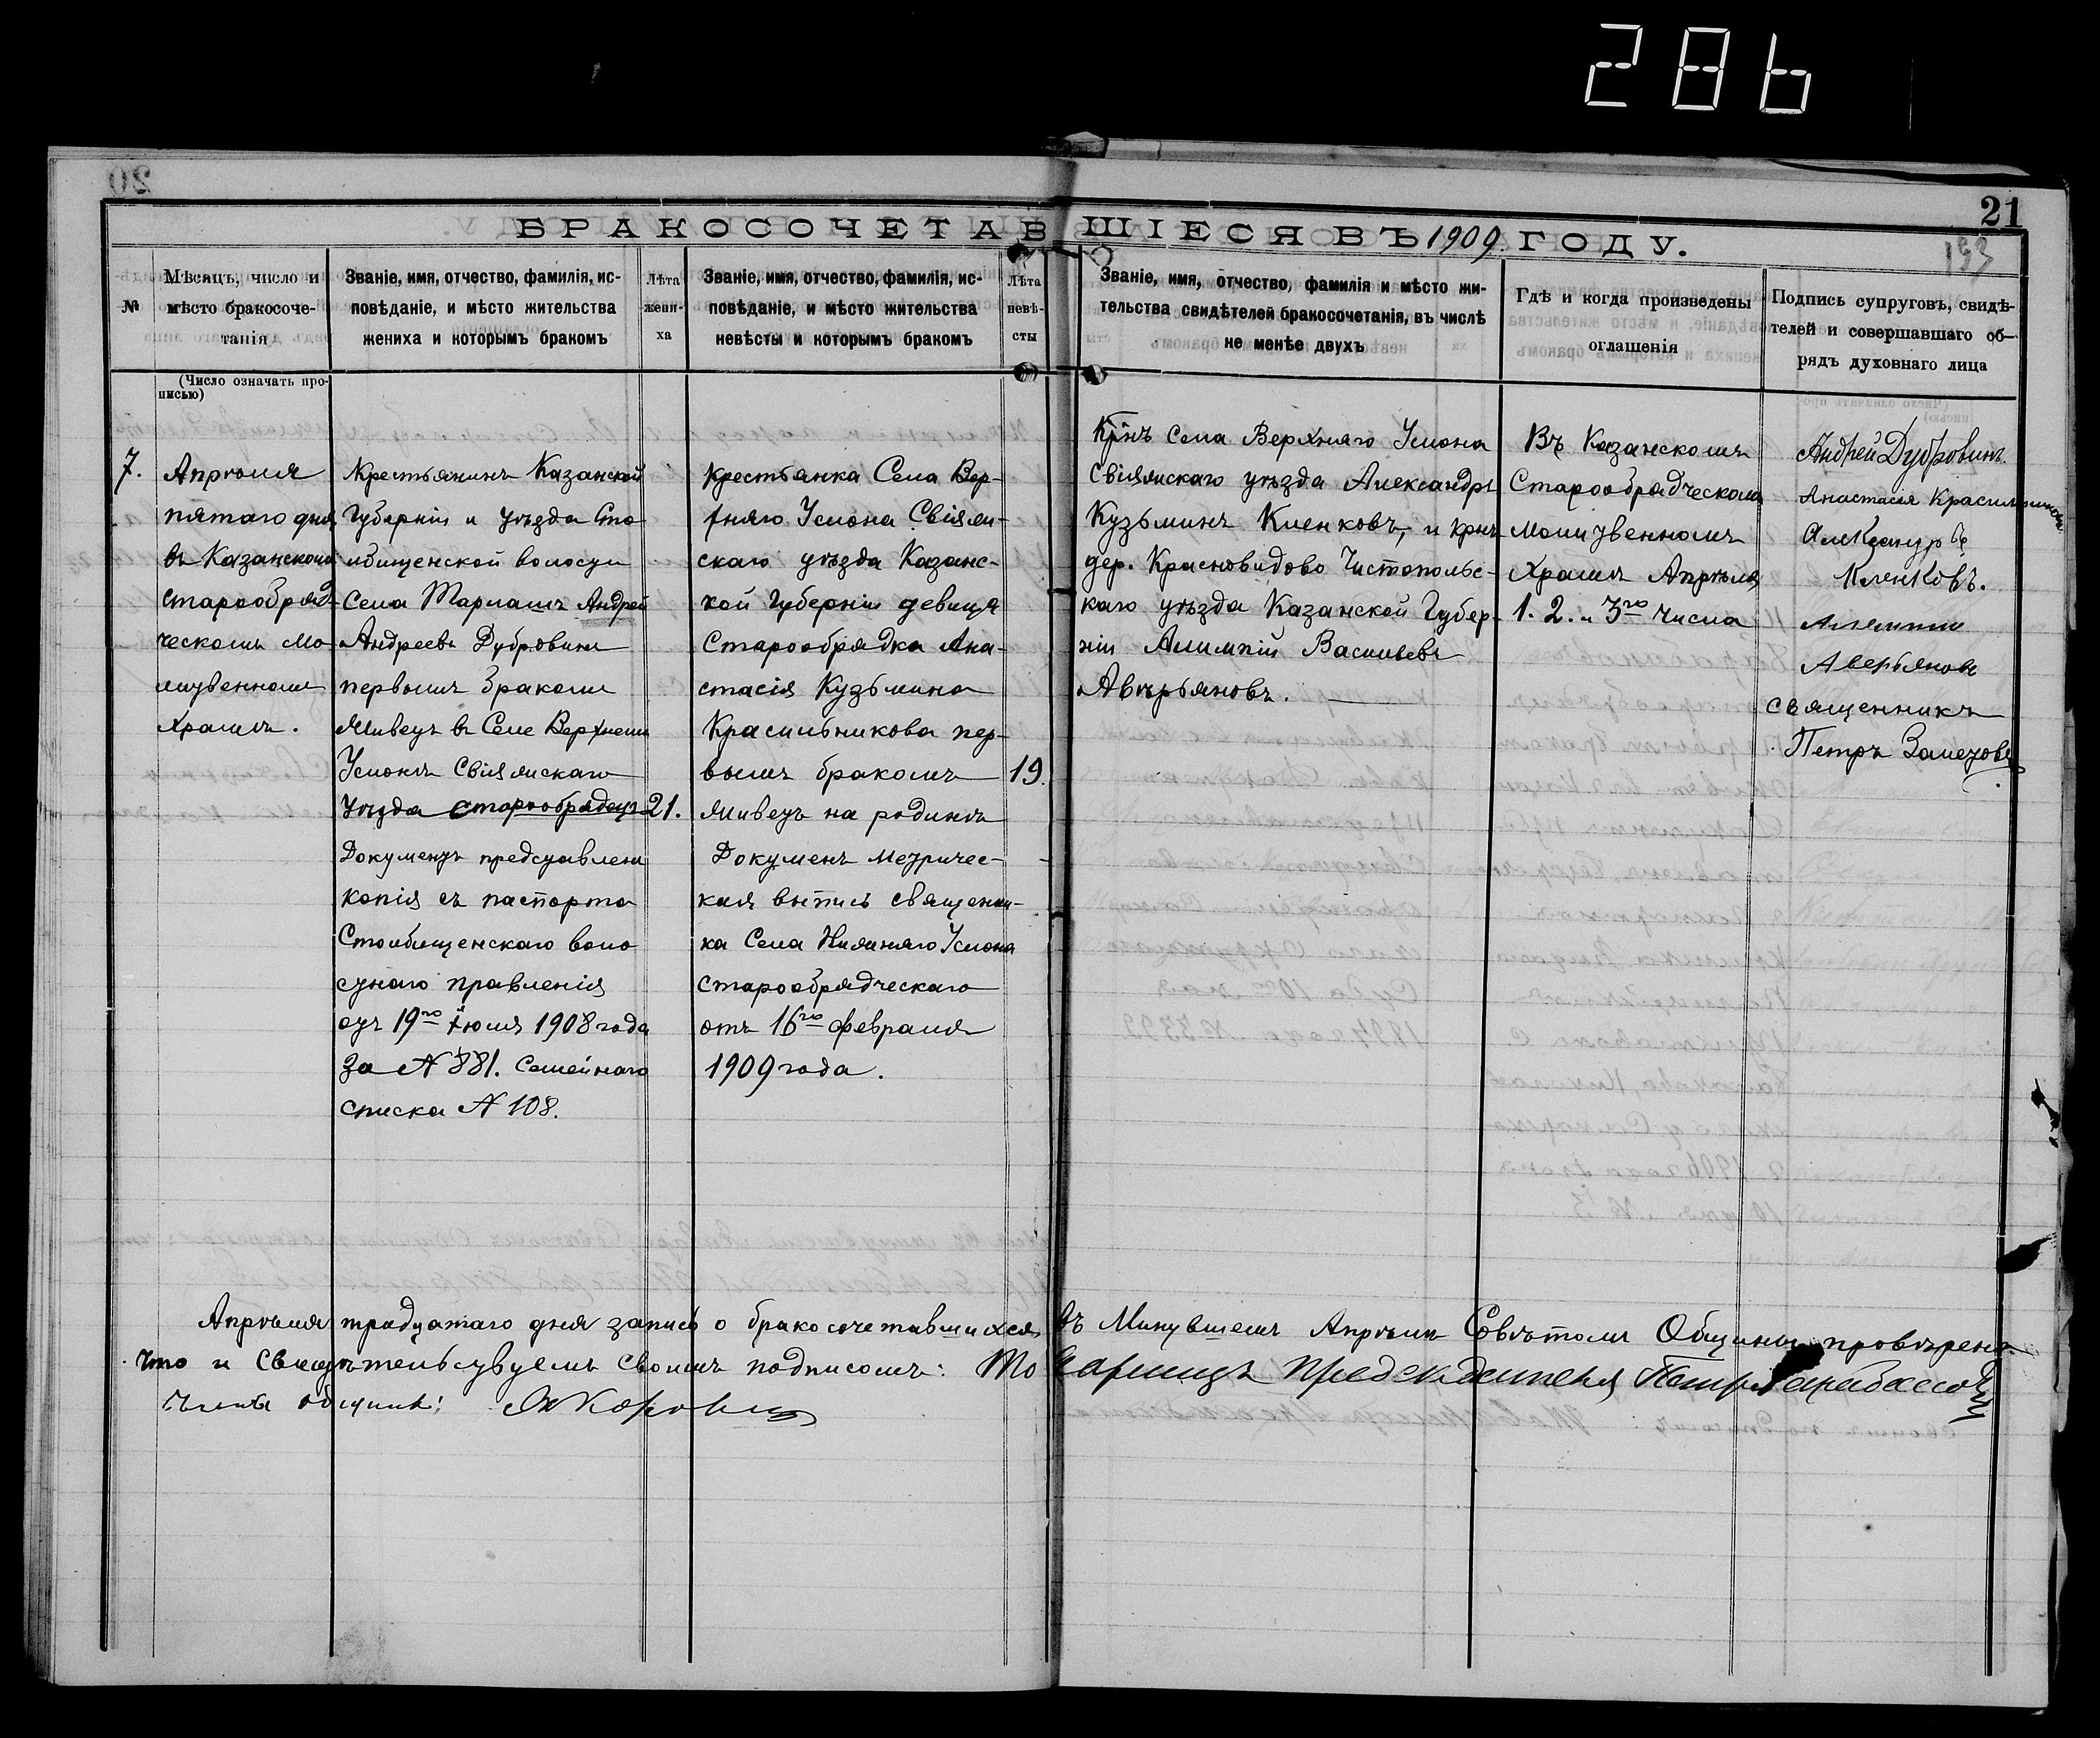 286
20
21
193
БРАКОСОЧЕТАВШІЕСЯ ВЪ 1909 ГОДУ.
№
Мѣсяцъ, число и
мѣсто бракосоче-
танія
(Число означать про-
писью)
Званіе, имя, отчество, фамилія, ис-
повѣданіе, и мѣсто жительства
жениха и которымъ бракомъ
Лѣта
жени-
ха
Званіе, имя, отчество, фамилія, ис-
повѣданіе, и мѣсто жительства
невѣсты и которымъ бракомъ
Лѣта
невѣ-
сты
Званіе, имя, отчество, фамилія и мѣсто жи-
тельства свидѣтелей бракосочетанія, въ числѣ
не менѣе двухъ
Гдѣ и когда произведены
оглашенія
Подпись супруговъ, свидѣ-
телей и совершавшаго об-
рядъ духовнаго лица
7.
Апрѣля
пятаго дня
въ Казанскомъ
старообряд-
ческомъ мо-
литвенномъ
храмѣ.
Крестьянинъ Казанской
Губерніи и уѣзда Сто-
лбищенской волости
Села Тарлашъ Андрей
Андреевъ Дубровинъ
первымъ бракомъ
Живетъ въ Селе Верхнемъ
Услонѣ Свіяжскаго
Уѣзда старообрядецъ
Документъ представленъ
копія съ паспорта
Столбищенскаго воло
стнаго правленія
отъ 19го Іюля 1908 года
За № 881. Семейнаго
списка № 108.
21.
Крестьянка Села Вер-
хняго Услона Свіяж-
скаго уѣзда Казанс-
кой Губерніи девица
Старообрядка Ана-
стасія Кузьмина
Красильникова пер-
вымъ бракомъ
живетъ на родинѣ
Документъ метричес-
кая выпись священни-
ка Села Нижняго Услона
старообрядческаго
отъ 16го февраля
1909 года.
19.
Крнъ Села Верхняго Услона
Свіяжскаго уѣзда Александръ
Кузьминъ Кленковъ, и крнъ
дер. Красновидово Чистопольс-
каго уѣзда Казанской Губер-
ніи Алимпій Васильевъ
Аверьяновъ.
Въ Казанскомъ
Старообрядческомъ
молитвенномъ
храмѣ Апрѣля
1. 2. и 3го числа
Андрей Дубровинъ.
Анастасія Красильникова
Александръ
Кленковъ.
Алимпій
Аверьяновъ
священникъ
Петръ Залетовъ
Апрѣля тридцатаго дня запись о бракосочетавшихся въ Минувшемъ Апрѣлѣ Совѣтомъ Общины провѣрена
что и свидѣтельствуемъ своимъ подписомъ: Товарищъ Председателя Петръ
Члены общины: